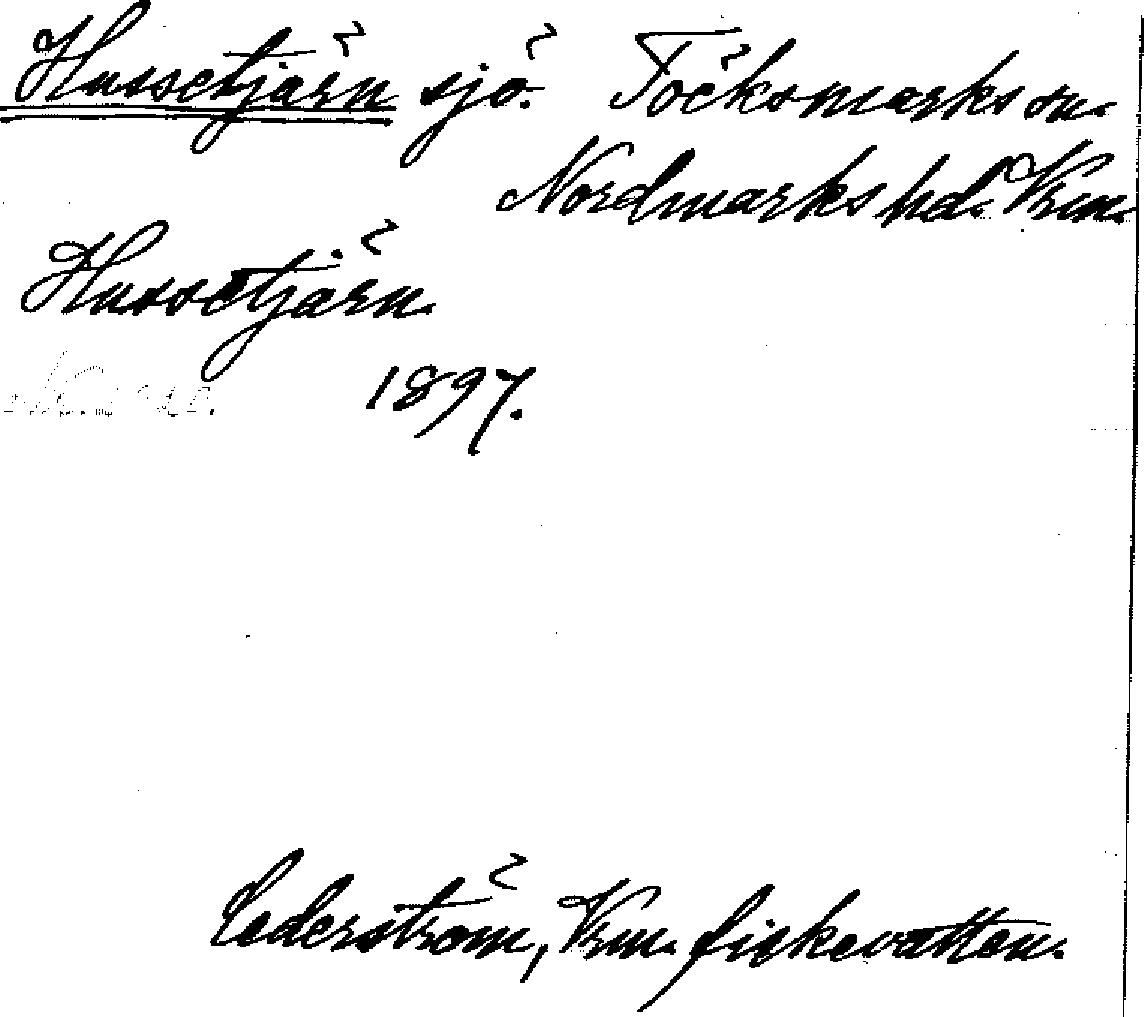 Hussetjärn sjö. Töcksmarks sn.
Nordmarks hd. Vrm.
Hussetjärn.
1897.
Cederström, Vrm. fiskevatten.